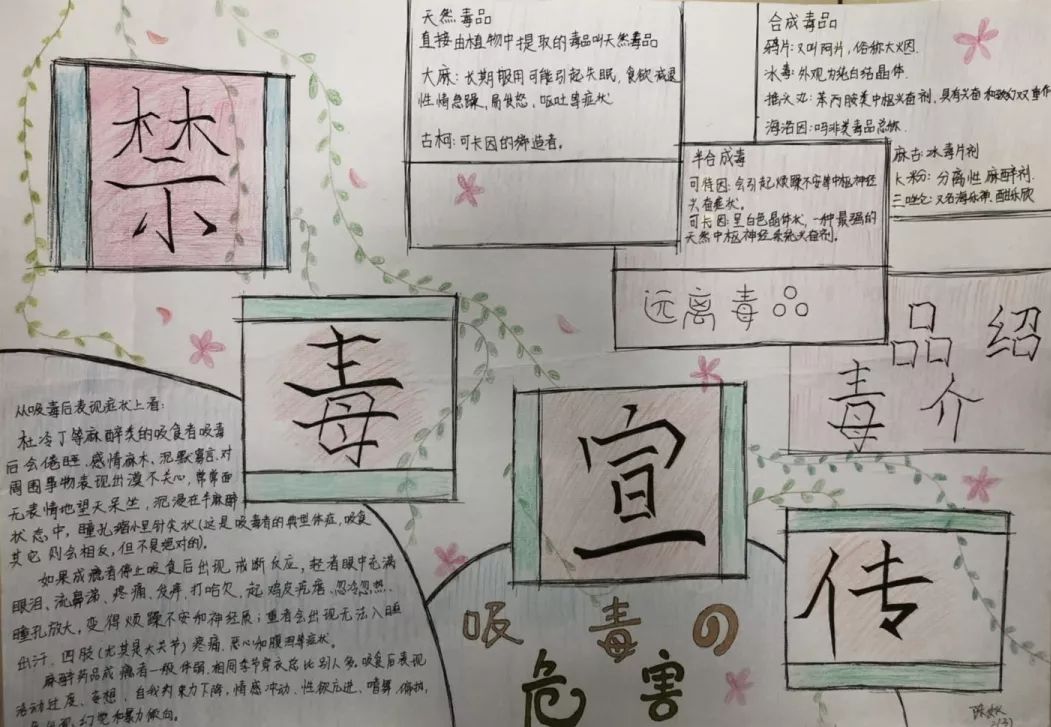 禁
毒
宣
传
天然毒品
直接由植物中提取的毒品叫天然毒品
大麻:长期服用可能引起失眠,食欲减退
性情急躁、易愤怒、呕吐等症状
古柯:可卡因的缔造者。
合成毒品
鸦片:又叫阿片,俗称大烟.
冰毒:外观为纯白结晶体.
摇头丸:苯丙胺类中枢兴奋剂,具有兴奋和致幻双重作
海洛因:吗啡类毒品总称.
麻古:冰毒片剂
K粉:分离性麻醉剂.
三唑仑:又名海乐神、酣乐欣
半合成毒
可待因:会引起烦躁不安等中枢神经
兴奋症状。
可卡因:呈白色晶体状,一种最强的
天然中枢神经系统兴奋剂。
远离毒品
毒品介绍
从吸毒后表现症状上看:
杜冷丁等麻醉类的吸食者吸毒
后会倦睡、感情麻木、沉默寡言、对
周围事物表现出漠不关心,常常面
无表情地望天呆坐,沉浸在半麻醉
状态中,瞳孔缩小呈针尖状(这是吸毒者的典型体症,吸食
其它则会相反,但不是绝对的)。
如果成瘾者停止吸食后出现戒断反应,轻者眼中充满
眼泪、流鼻涕、疼痛、发痒、打哈欠、起鸡皮疙瘩、忽冷忽热、
瞳孔放大,变得烦躁不安和神经质;重者会出现无法入睡
出汗、四肢(尤其是大关节)疼痛、恶心和腹泻等症状。
麻醉药品成瘾者一般体弱,相同季节穿衣总比别人多。吸食后表现
活动过度、妄想、自我约束力下降,情感冲动、性欲亢进、嗜舞、偏执、
幻觉和暴力倾向。
吸毒の
危害